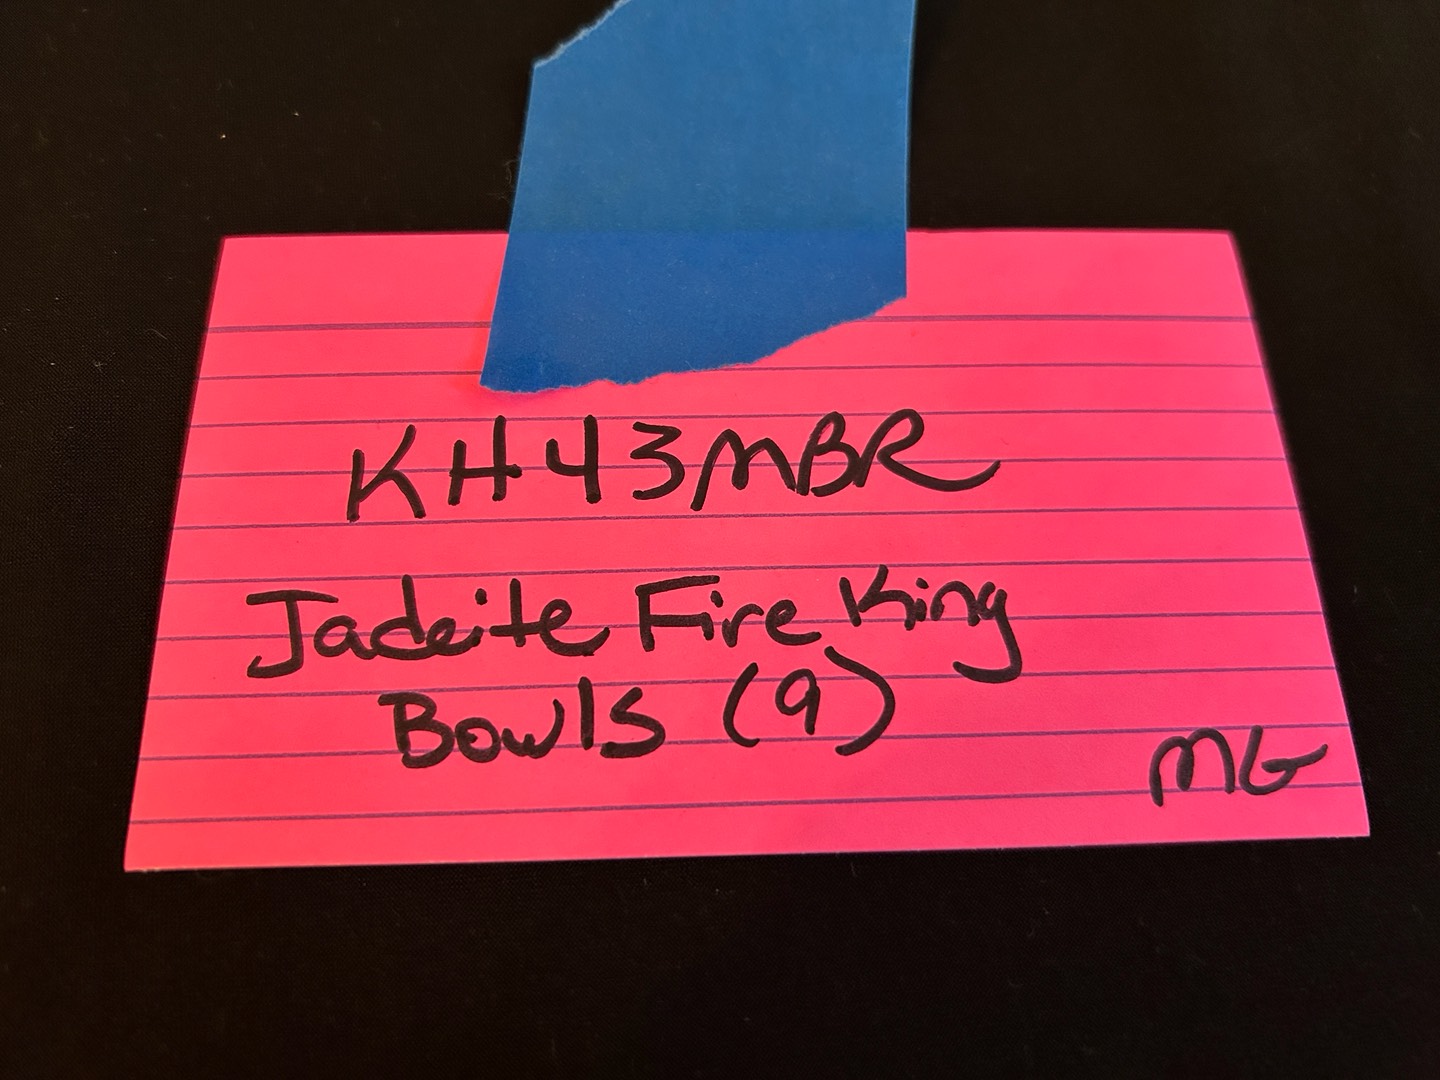 KH43MBR
Jadeite Fire King
Bowls (9)
MG